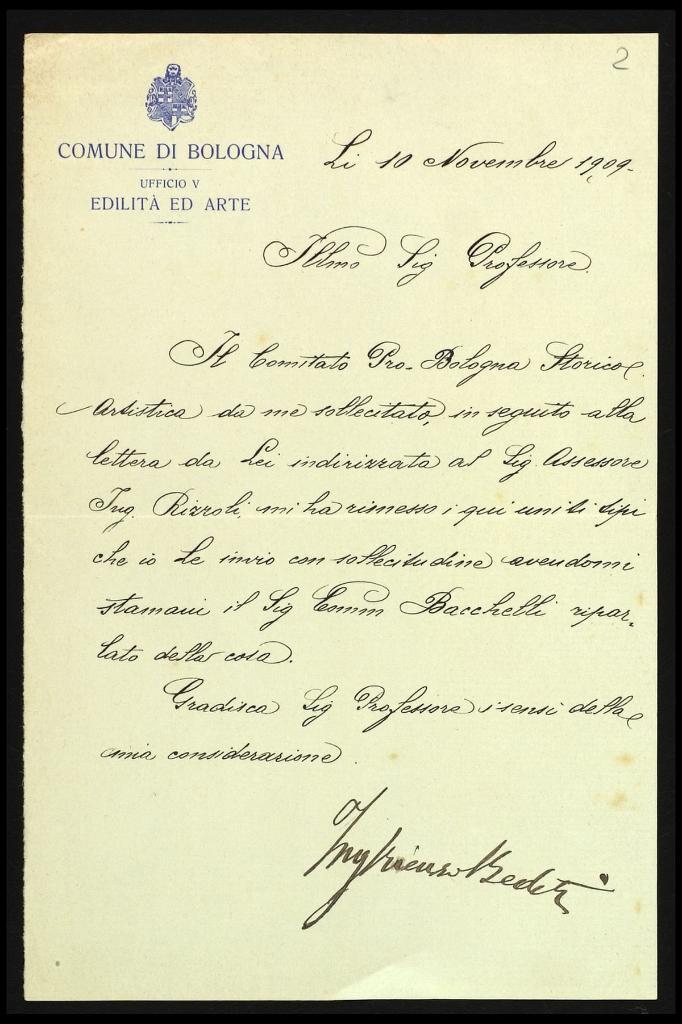 2
COMUNE DI BOLOGNA
UFFICIO V
EDILITÀ ED ARTE
Li 10 Novembre 1909.
Illmo Sig Professore.
Il Comitato Pro-Bologna Storico
Artistica da me sollecitato, in seguito alla
lettera da Lei indirizzata al Sig. Assessore
Ing. Rizzoli, mi ha rimesso i qui uniti tipi
che io Le invio con sollecitudine avendomi
stamani il Sig Comm Bacchelli ripar-
lato della cosa.
Gradisca Sig Professore i sensi della
mia considerazione.
Ing